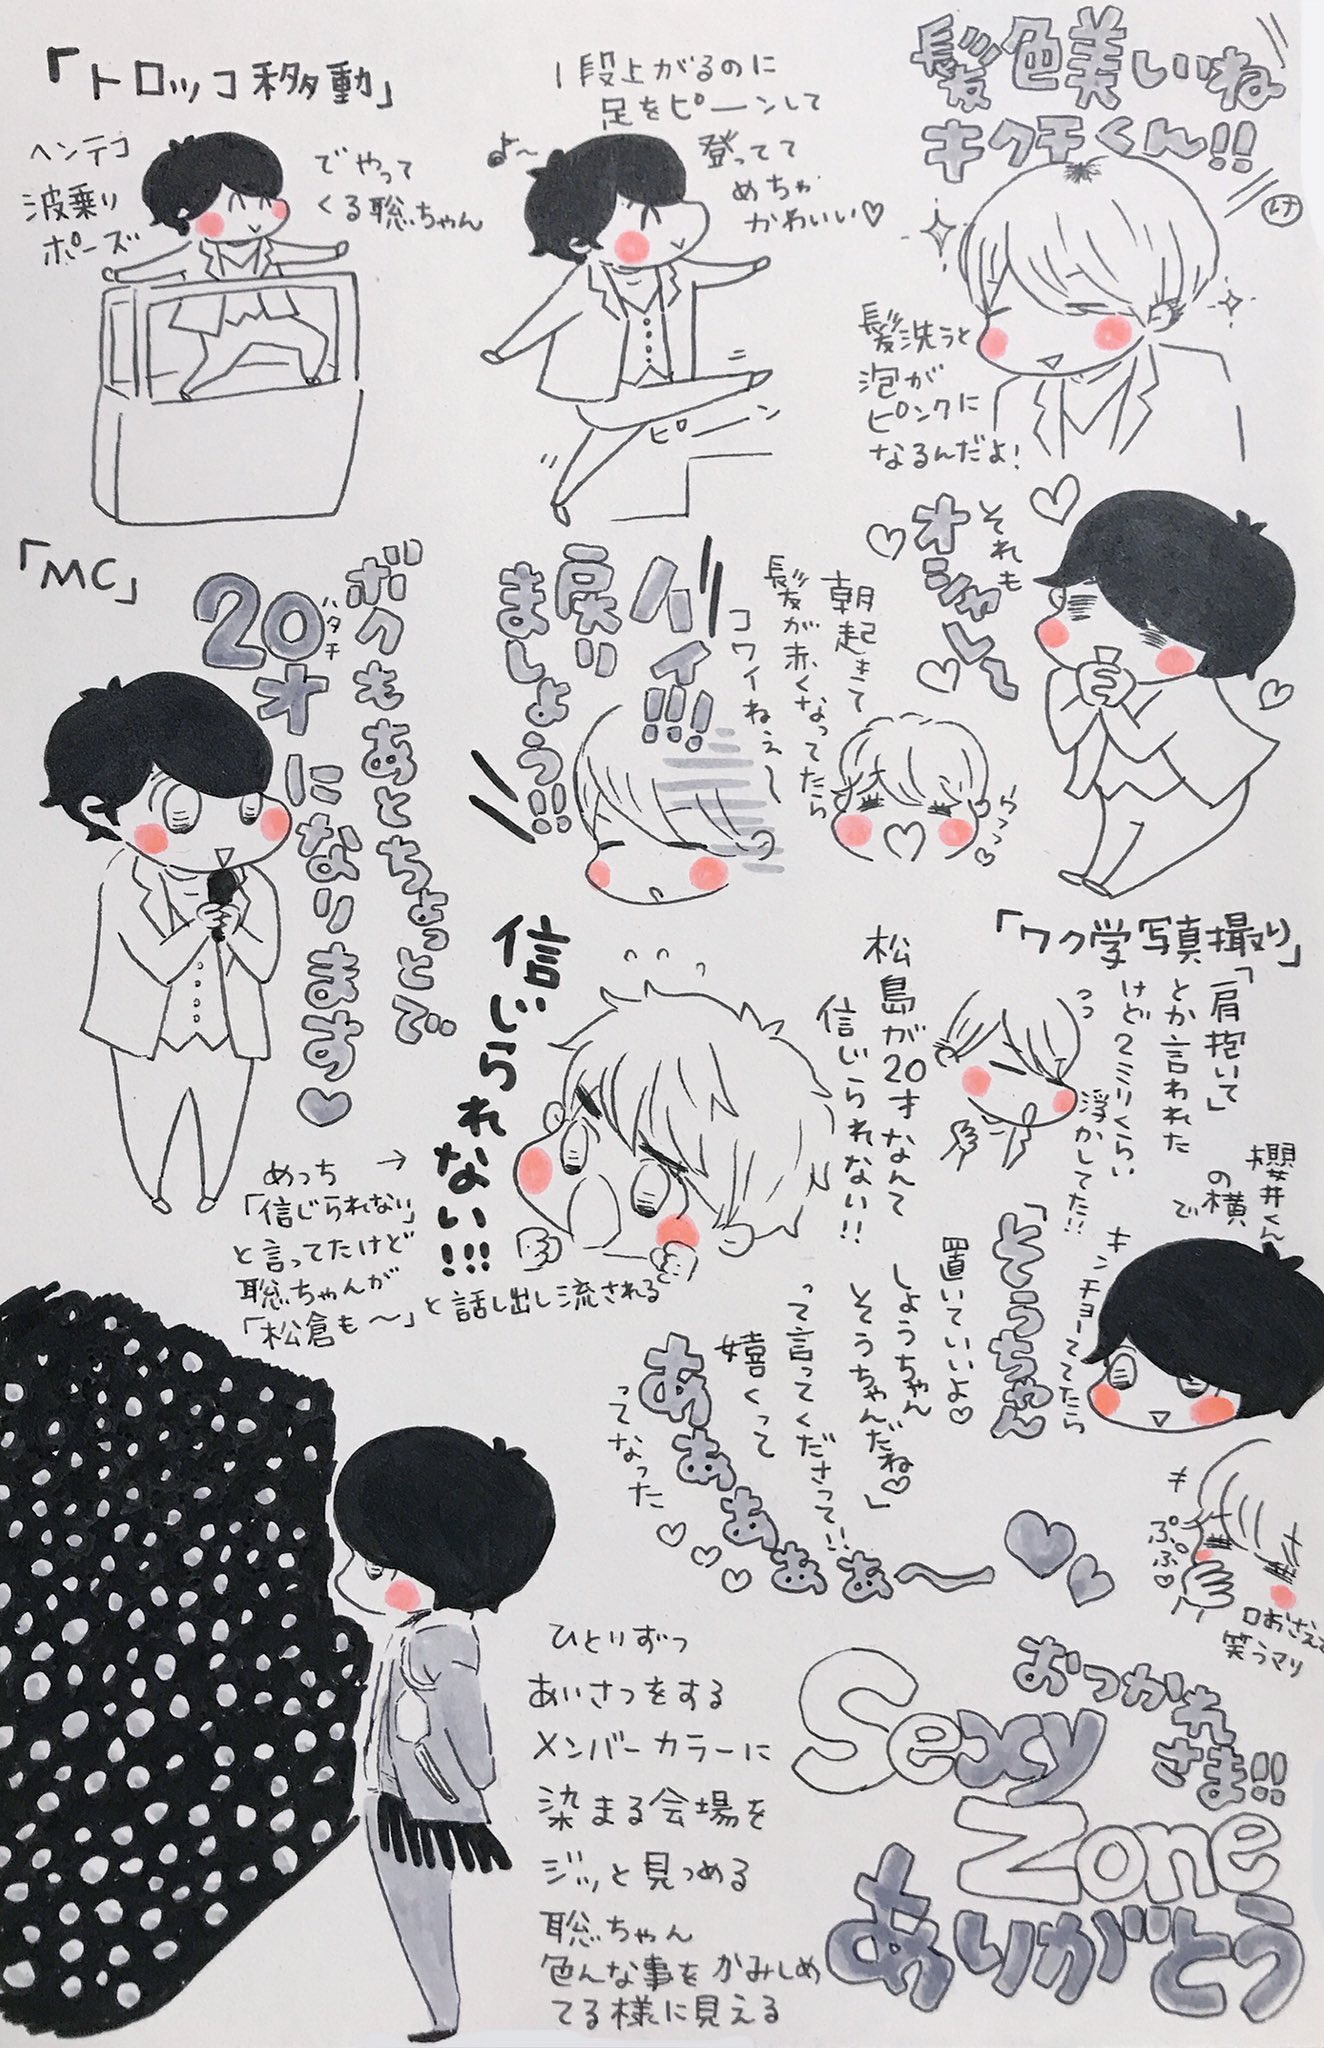 「トロッコ移動」
ヘンテコ
波乗り
ポーズ
でやって
くる聡ちゃん
1段上がるのに
足をピーンして
登ってて
めちゃ
かわいい♡
よ〜
ピーン
髪色美しいね
キクチくん!!
髪洗うと
泡が
ピンクに
なるんだよ!
それも
オシャレして
朝起きて
髪が赤くなってたら
コワイねぇ〜
ウフフ♡
ハイ!!!
戻り
ましょう!!
「MC」
ボクもあとちょっとで
20才になります♡
ハタチ
信じられない!!!
松島が20才なんて
信じられない!!
めっち
「信じられない」
と言ってたけど
聡ちゃんが
「松倉も〜」と話し出し流される
「ワク学写真撮り」
「肩抱いて」
とか言われた
けど2ミリくらい
浮かしてた!!
櫻井くん
の横
で
キンチョーしてたら
「そうちゃん
置いていいよ♡
しょうちゃん
そうちゃんだね♡」
って言ってくださって!!
嬉くって
あぁぁぁぁぁ〜
ってなった
ぷぷ♡
口おさえて
笑うマリ
ひとりずつ
あいさつをする
メンバーカラーに
染まる会場を
ジッと見つめる
聡ちゃん
色んな事をかみしめ
てる様に見える
おつかれ
さま!!
Sexy
Zone
ありがとう